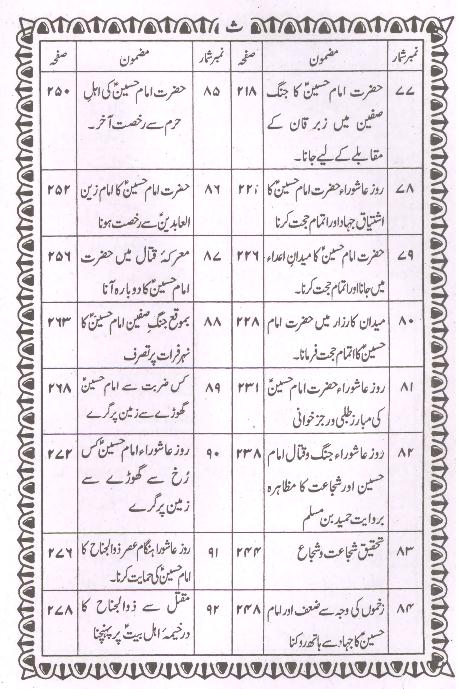 ث
نمبر شمار مضمون صفحہ
۷۷ حضرت امام حسینؑ کا جنگ ۲۱۸
صفین میں زبرقان کے
مقابلے کے لیے جانا۔
۷۸ روز عاشوراء حضرت امام حسینؑ کا ۲۲۱
اشتیاق جہاد اور اتمام حجت کرنا
۷۹ حضرت امام حسینؑ کا میدانِ اعداء ۲۲۶
میں جانا اور اتمام حجت کرنا۔
۸۰ میدان کارزار میں حضرت امام ۲۲۸
حسینؑ کا اتمام حجت فرمانا۔
۸۱ روز عاشوراء حضرت امام حسینؑ ۲۳۱
کی مبارز طلبی ورجز خوانی
۸۲ روز عاشوراء جنگ وقتال امام ۲۳۸
حسین اور شجاعت کا مظاہرہ
بروایت حمید بن مسلم
۸۳ تحقیق شجاعت و شجاع ۲۴۴
۸۴ زخموں کی وجہ سے ضعف اور امام ۲۴۸
حسینؑ کا جہاد سے ہاتھ روکنا
نمبر شمار مضمون صفحہ
۸۵ حضرت امام حسینؑ کی اہلِ ۲۵۰
حرم سے رخصت آخر۔
۸۶ حضرت امام حسینؑ کا امام زین ۲۵۲
العابدینؑ سے رخصت ہونا
۸۷ معرکۂ قتال میں حضرت ۲۵۶
امام حسینؑ کا دوبارہ آنا
۸۸ بموقع جنگِ صفین امام حسینؑ کا ۲۶۳
نہر فرات پر تصرف
۸۹ کس ضربت سے امام حسینؑ ۲۶۸
گھوڑے سے زمین پر گرے
۹۰ روز عاشوراء امام حسینؑ کس ۲۷۲
رُخ سے گھوڑے سے
زمین پر گرے
۹۱ روز عاشورا ہنگام عصر ذوالجناح کا ۲۷۶
امام حسینؑ کی حمایت کرنا۔
۹۲ مقتل سے ذوالجناح کا ۲۷۸
در خیمۂ اہل بیتؑ پر پہنچنا